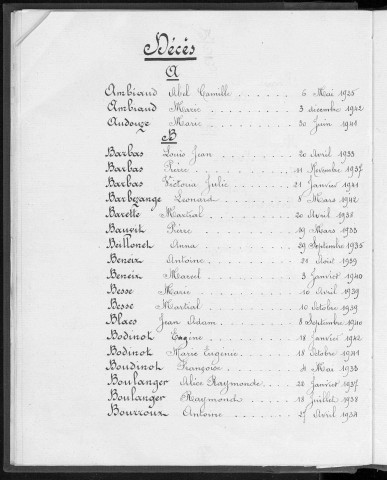 Décès
A
Ambiaud Abel Camille 6 Mai 1925
Ambraud Marie 3 décembre 1942
Audouze Marie 30 Juin 1941
B
Barbas Louis Jean 20 Avril 1933
Barbas Pierre 11 Novembre 1937
Barbas Victoria Julie 21 Janvier 1941
Barbezange Léonard 8 Mars 1942
Barette Martial 20 Avril 1938
Bauvit Pierre 19 Mars 1933
Beillonet Anna 29 Septembre 1935
Beneix Antoine 21 Août 1939
Beneix Marcel 3 Janvier 1940
Besse Marie 10 Avril 1939
Besse Martial 10 Octobre 1939
Blaes Jean Adam 8 Septembre 1940
Bodinot Eugène 18 Janvier 1942
Bodinot Marie Eugénie 18 Octobre 1941
Boudinot Françoise 4 Mai 1933
Boulanger Alice Raymonde 20 Janvier 1937
Boulanger Raymond 18 Juillet 1938
Bourroux Antoine 27 Avril 1934